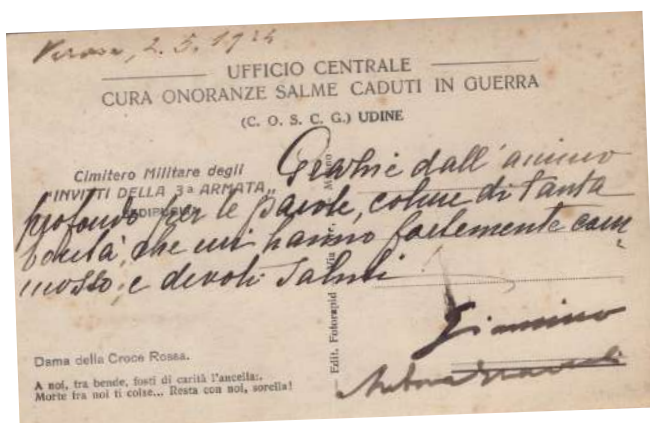 Verona, 2.5.1924
UFFICIO CENTRALE
CURA ONORANZE SALME CADUTI IN GUERRA
(C. O. S. C. G.) UDINE
Cimitero Militare degli
"INVITTI DELLA 3ª ARMATA„
REDIPUGLIA
Grazie dall'animo
profondo per le parole, colme di tanta
bontà, che mi hanno fortemente com
mosso, e devoti saluti
Giannino
Dama della Croce Rossa.
A noi, tra bende, fosti di carità l'ancella:.
Morte fra noi ti colse... Resta con noi, sorella!
Edit. Fotorapid
Milano